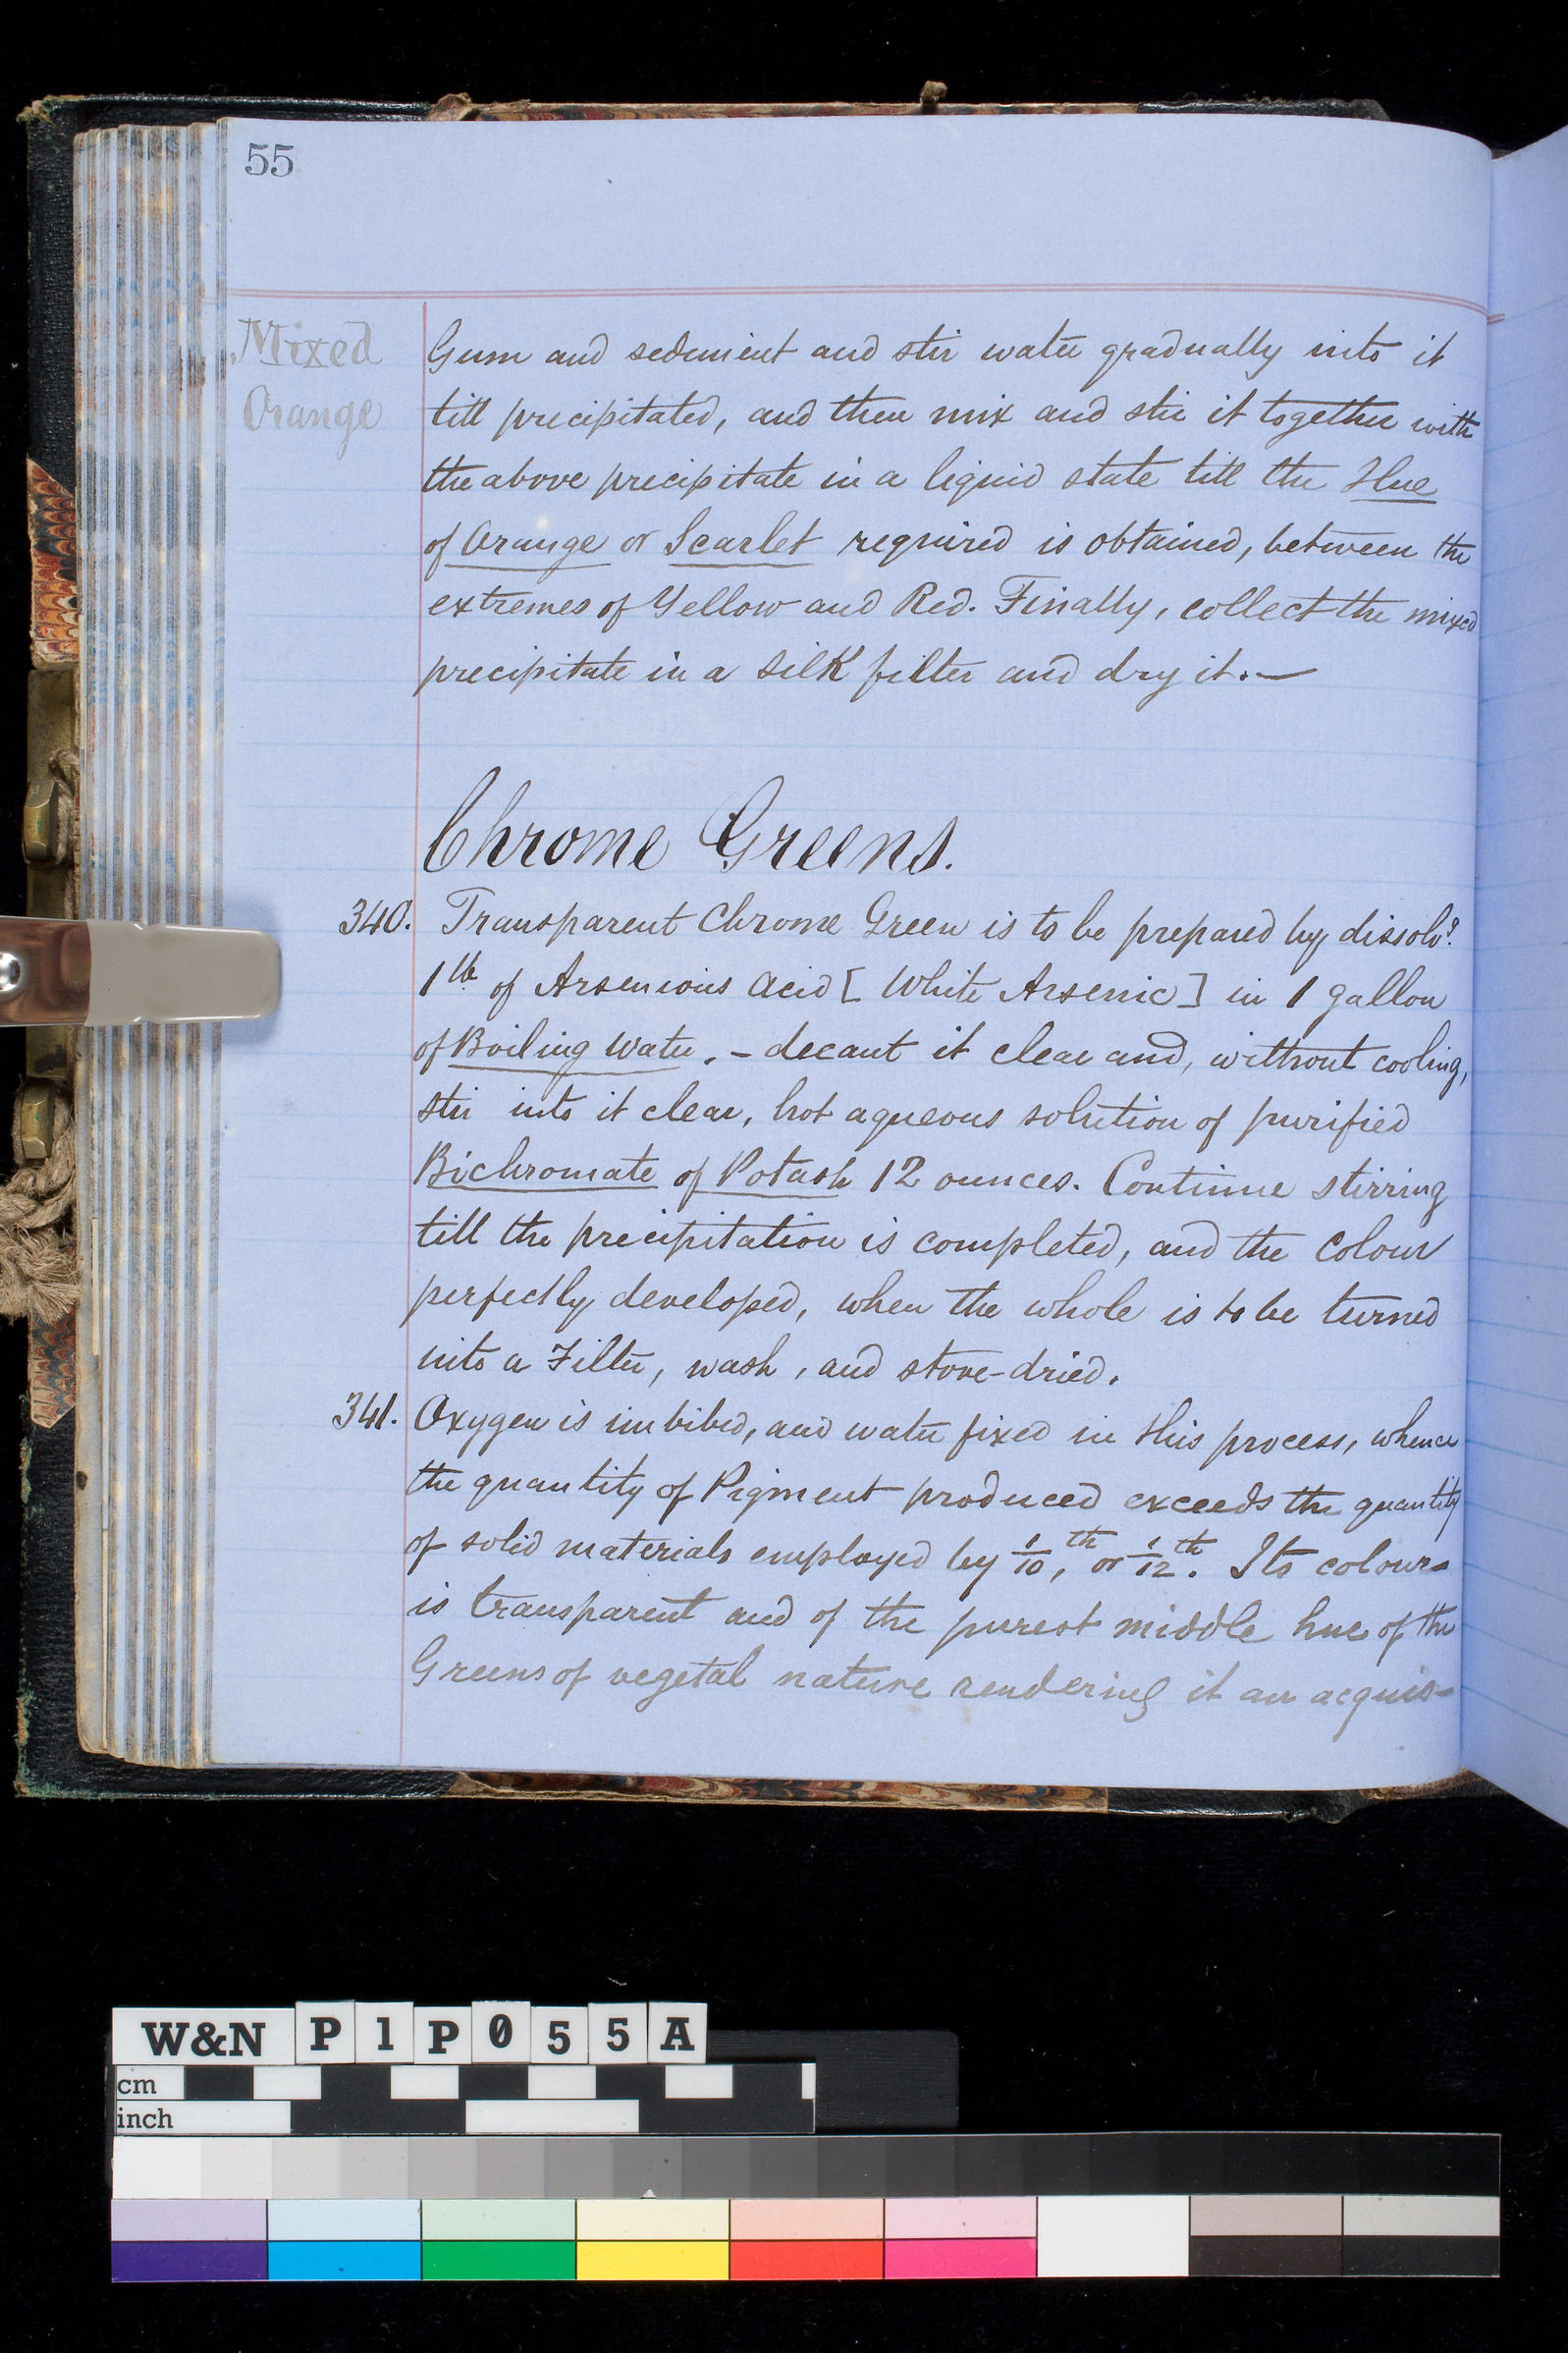 55
Mixed
Orange
Gum and sediment and stir water gradually into it
till precipitated, and then mix and stir it together with
the above precipitate in a liquid state till the Hue
of Orange or Scarlet required is obtained, between the
extremes of Yellow and Red. Finally, collect the mixed
precipitate in a silk filter and dry it.—
Chrome Greens.
340. Transparent Chrome Green is to be prepared by dissolvg.
1 lb of Arsenious Acid [White Arsenic] in 1 gallon
of Boiling Water. - decant it clear and, without cooling,
stir into it clear, hot aqueous solution of purified
Bichromate of Potash 12 ounces. Continue stirring
till the precipitation is completed, and the Colour
perfectly developed, when the whole is to be turned
into a Filter, wash, and stove-dried.
341. Oxygen is imbibed, and water fixed in this process, whence
the quantity of Pigment produced exceeds the quantity
of solid materials employed by 1/10,th or 1/12th. Its colour
is transparent and of the purest middle hue of the
Greens of vegetal nature rendering it an acquis-
W&N P1P055A
cm
inch